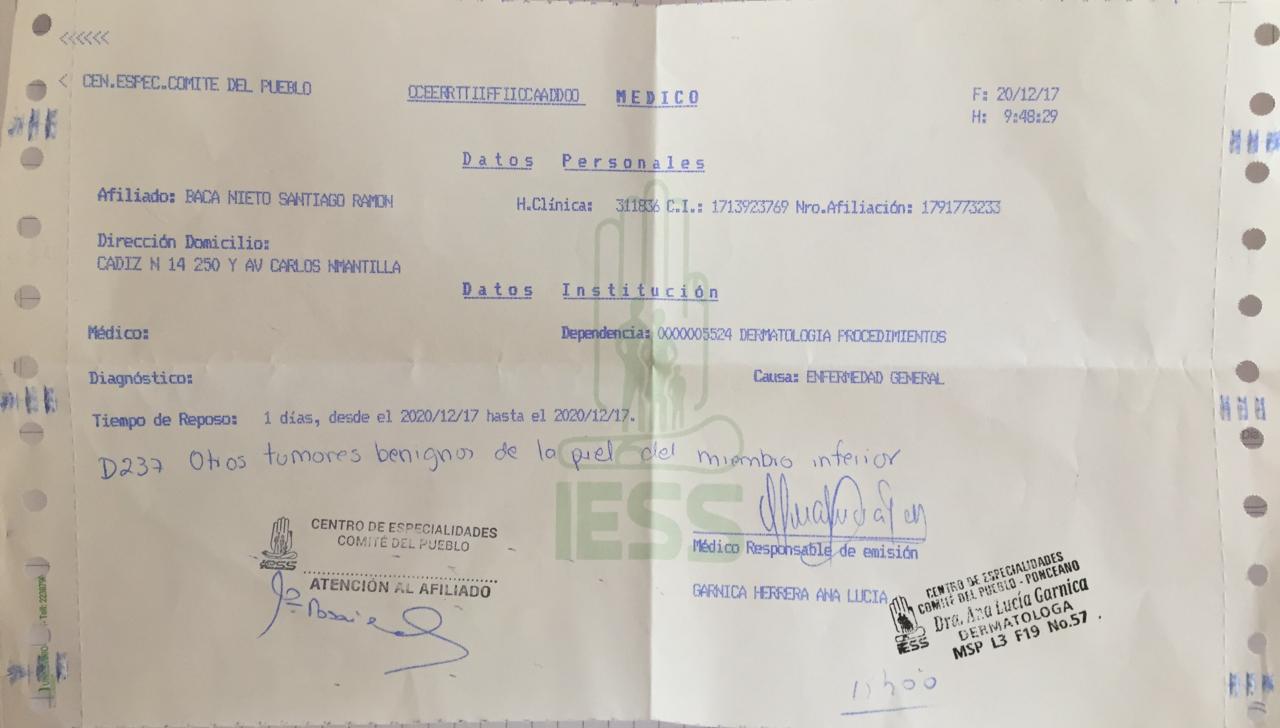 <<<<<<
< CEN.ESPEC.COMITE DEL PUEBLO OCEERRTTIIFFIIOCAADDOO MEDICO F: 20/12/17
H: 9:48:29
Datos Personales
Afiliado: BACA NIETO SANTIAGO RAMON H.Clínica: 311836 C.I.: 1713923769 Nro.Afiliación: 1791773233
Dirección Domicilio:
CADIZ N 14 250 Y AV CARLOS NMANTILLA
Datos Institución
Médico: Dependencia: 0000005524 DERMATOLOGIA PROCEDIMIENTOS
Diagnóstico: Causa: ENFERMEDAD GENERAL
Tiempo de Reposo: 1 días, desde el 2020/12/17 hasta el 2020/12/17.
D237 Otros tumores benignos de la piel del miembro inferior
IESS
CENTRO DE ESPECIALIDADES
COMITÉ DEL PUEBLO
IESS
ATENCIÓN AL AFILIADO
Médico Responsable de emisión
GARNICA HERRERA ANA LUCIA
CENTRO DE ESPECIALIDADES
COMITÉ DEL PUEBLO - PONCEANO
Dra. Ana Lucía Garnica
DERMATOLOGA
MSP L3 F19 No.57
IESS
15h00